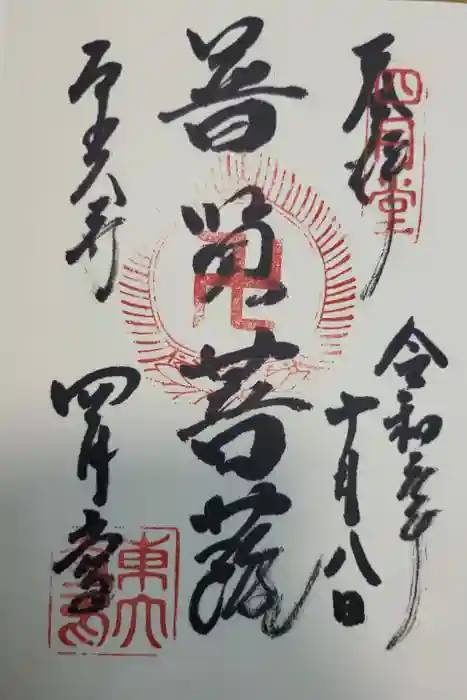 奉拝
四月堂
令和元年
十月八日
普賢菩薩
東大寺
四月堂
東大寺